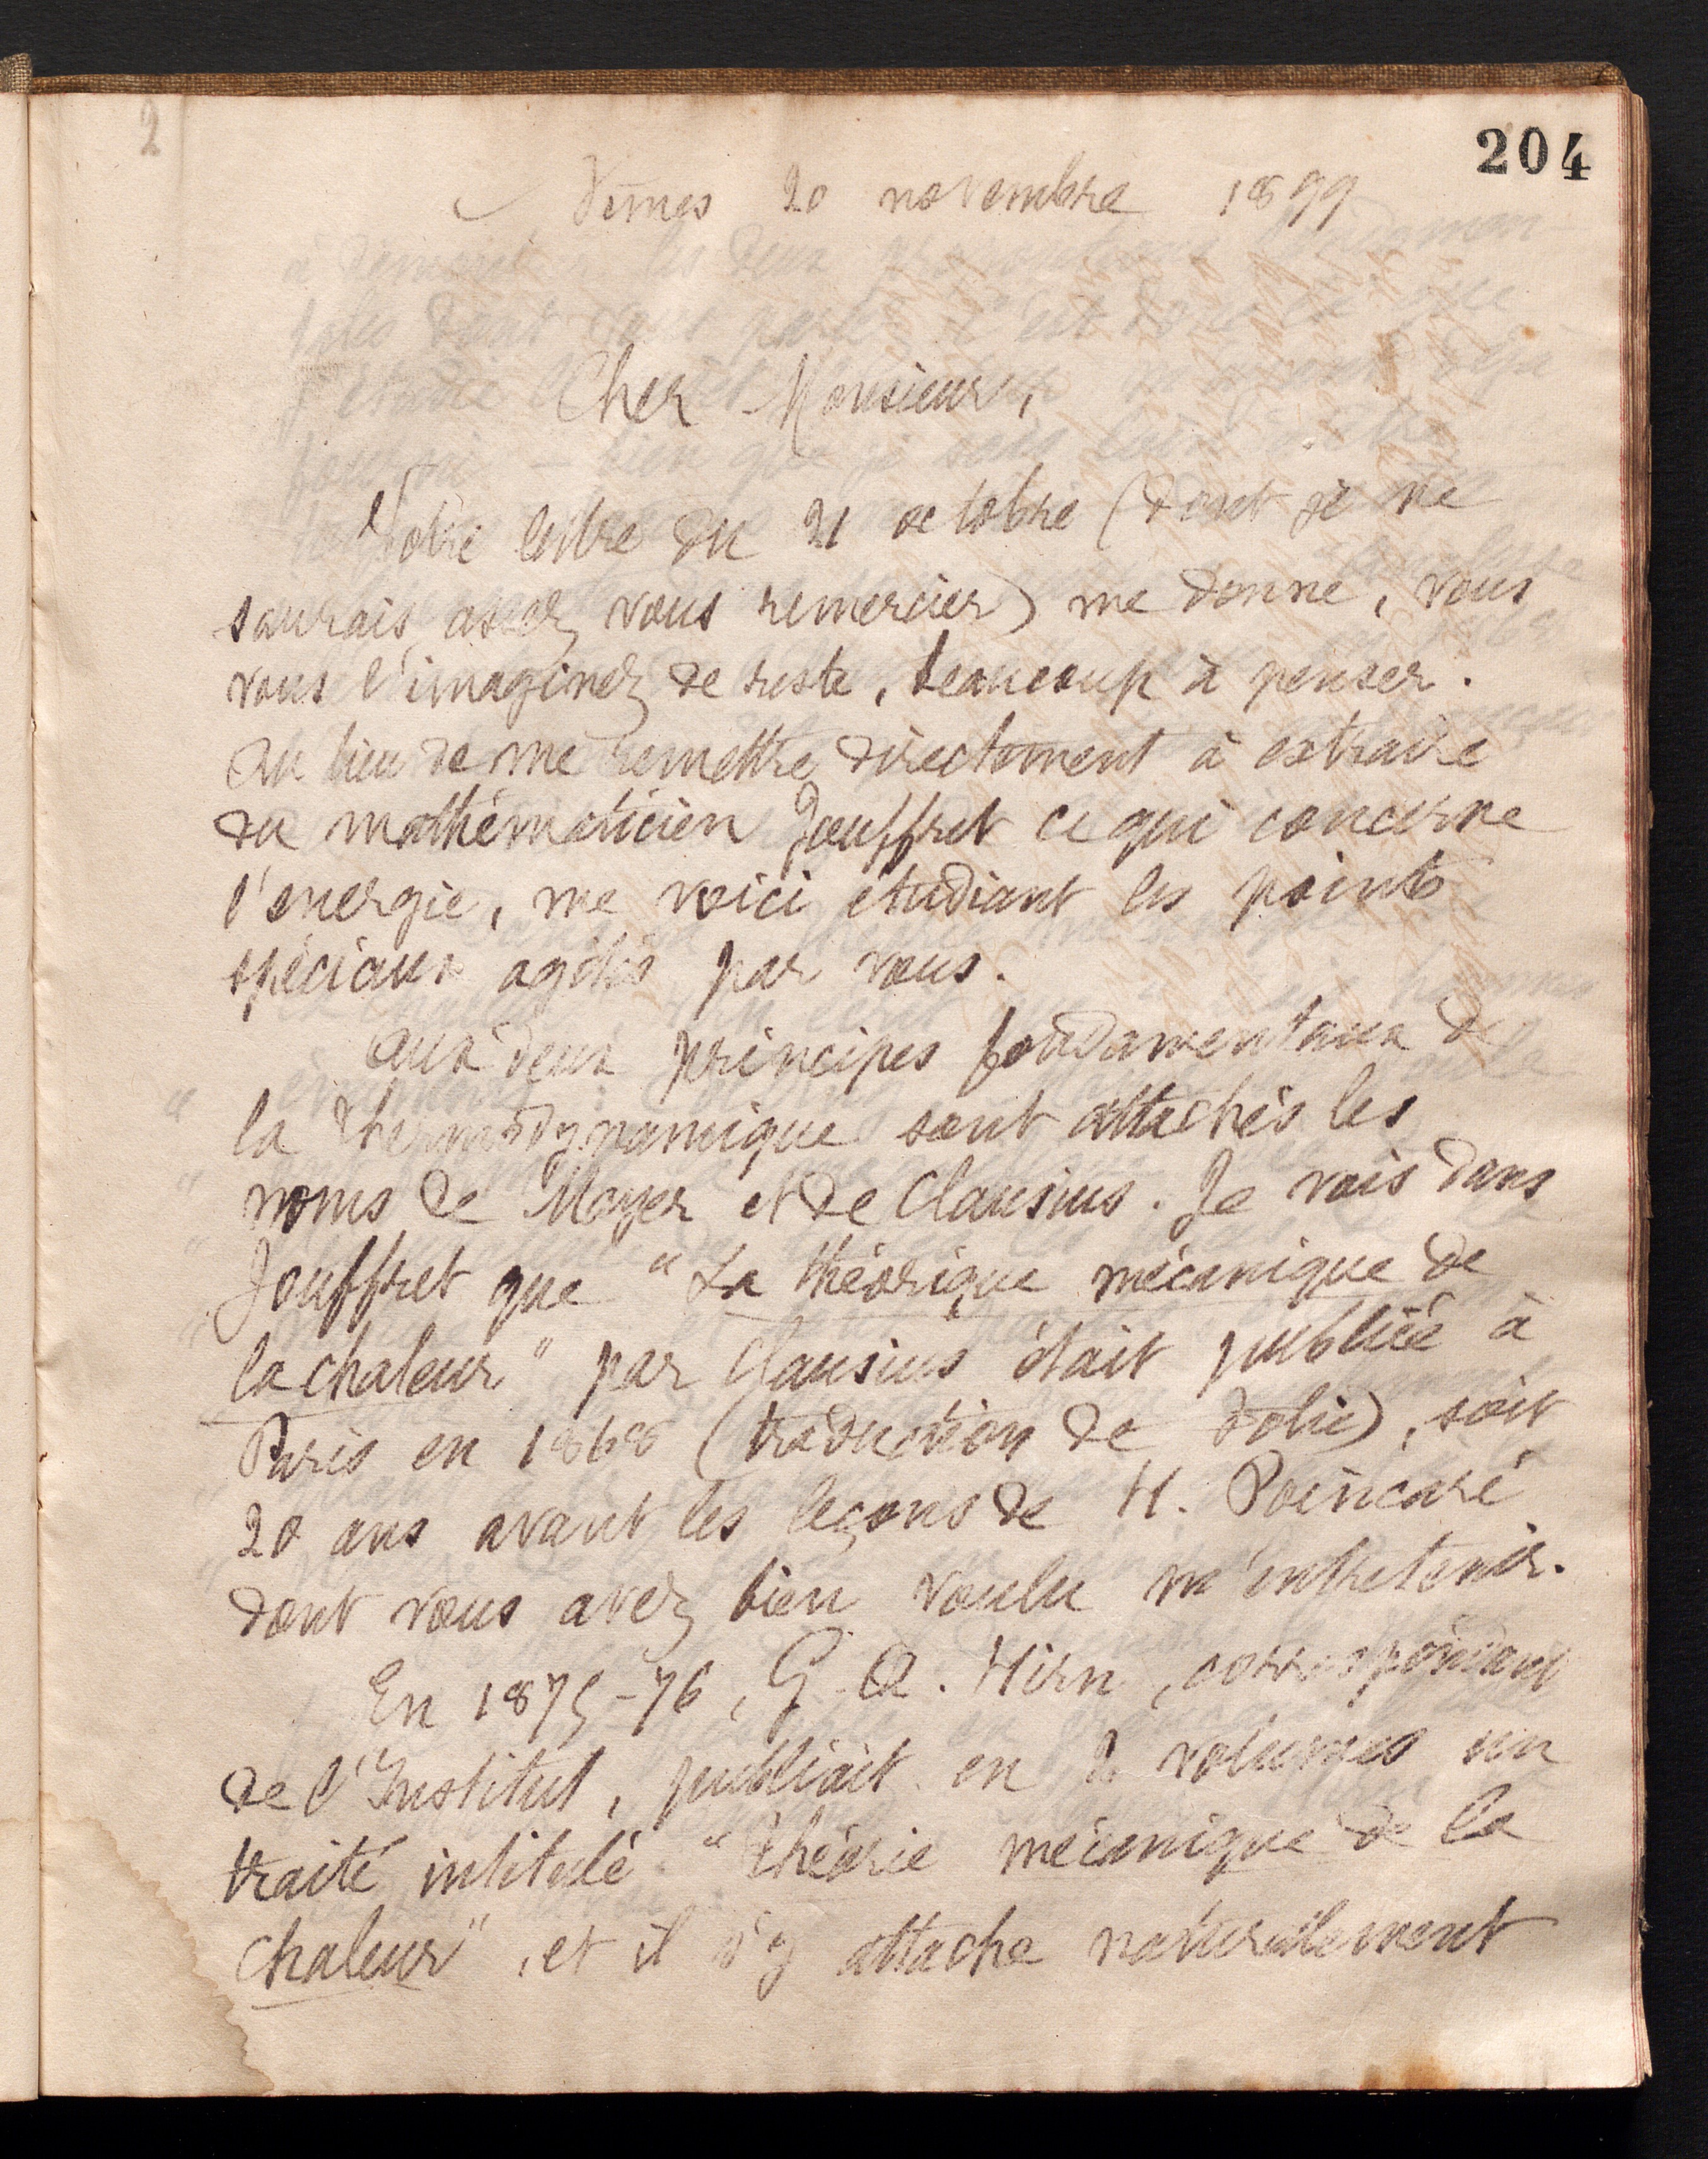 2
204
Nîmes 20 novembre 1899
Cher Monsieur,
Votre lettre du 21 octobre (dont je ne
saurais assez vous remercier) me donne, vous
vous l'imaginez de reste, beaucoup à penser.
Au lieu de me remettre directement à extraire
du mathématicien Jouffret ce qui concerne
l'énergie, me voici étudiant les points
spéciaux agités par vous.
Aux deux principes fondamentaux de
la thermodynamique sont attachés les
noms de Mayer et de Clausius. Je vois dans
Jouffret que "La théorique mécanique de
la chaleur" par Clausius était publiée à
Paris en 1868 (traduction de Folie), soit
20 ans avant les leçons de H. Poincaré
dont vous avez bien voulu m'entretenir.
En 1875-76, G. A. Hirn, correspondant
de l'Institut, publiait en 2 volumes un
traité intitulé "Théorie mécanique de la
chaleur", et il s'y attache naturellement